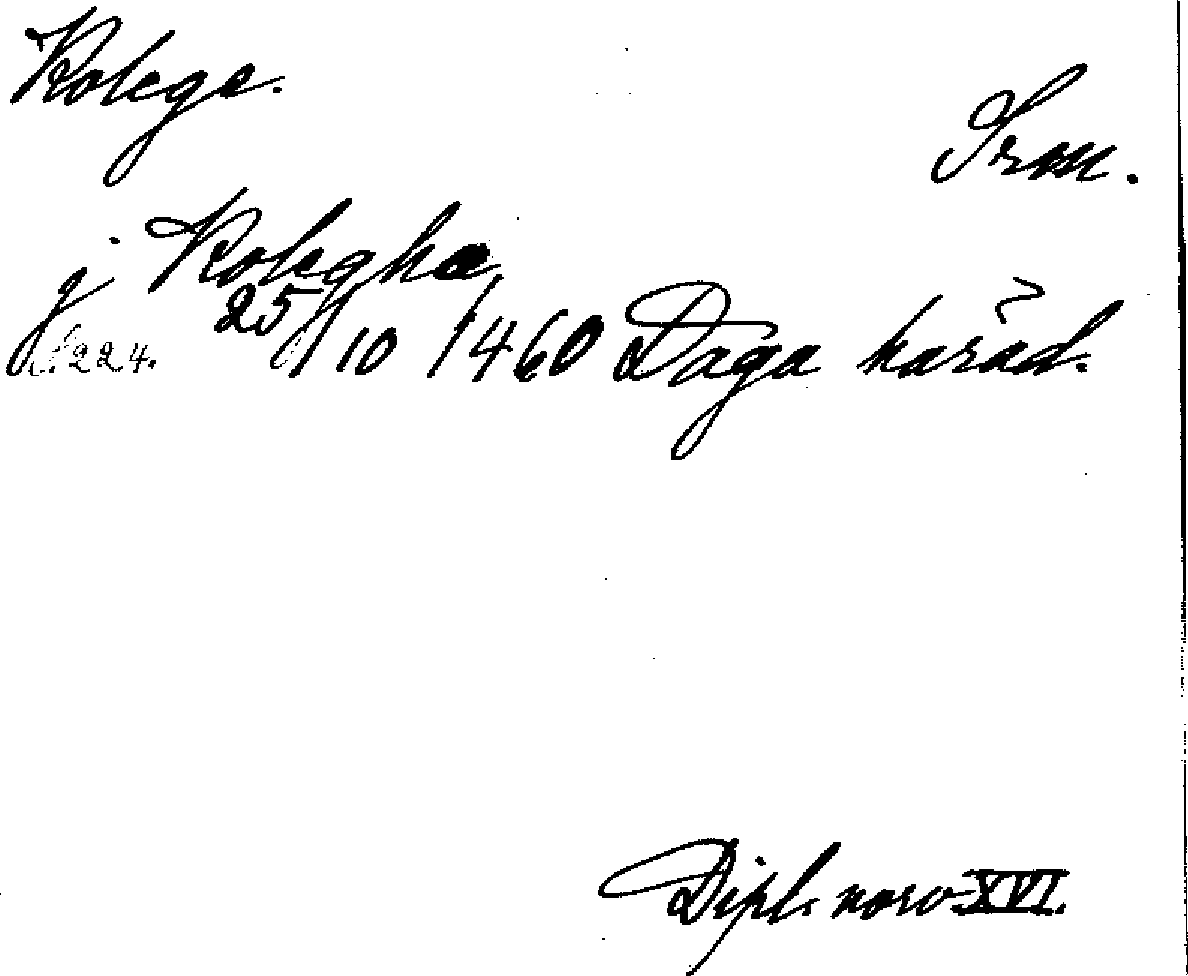 Kolega.
Srm.
j Koleghæ
s. 224. 25/10 1460 Daga härad.
Dipl. norv XVI.